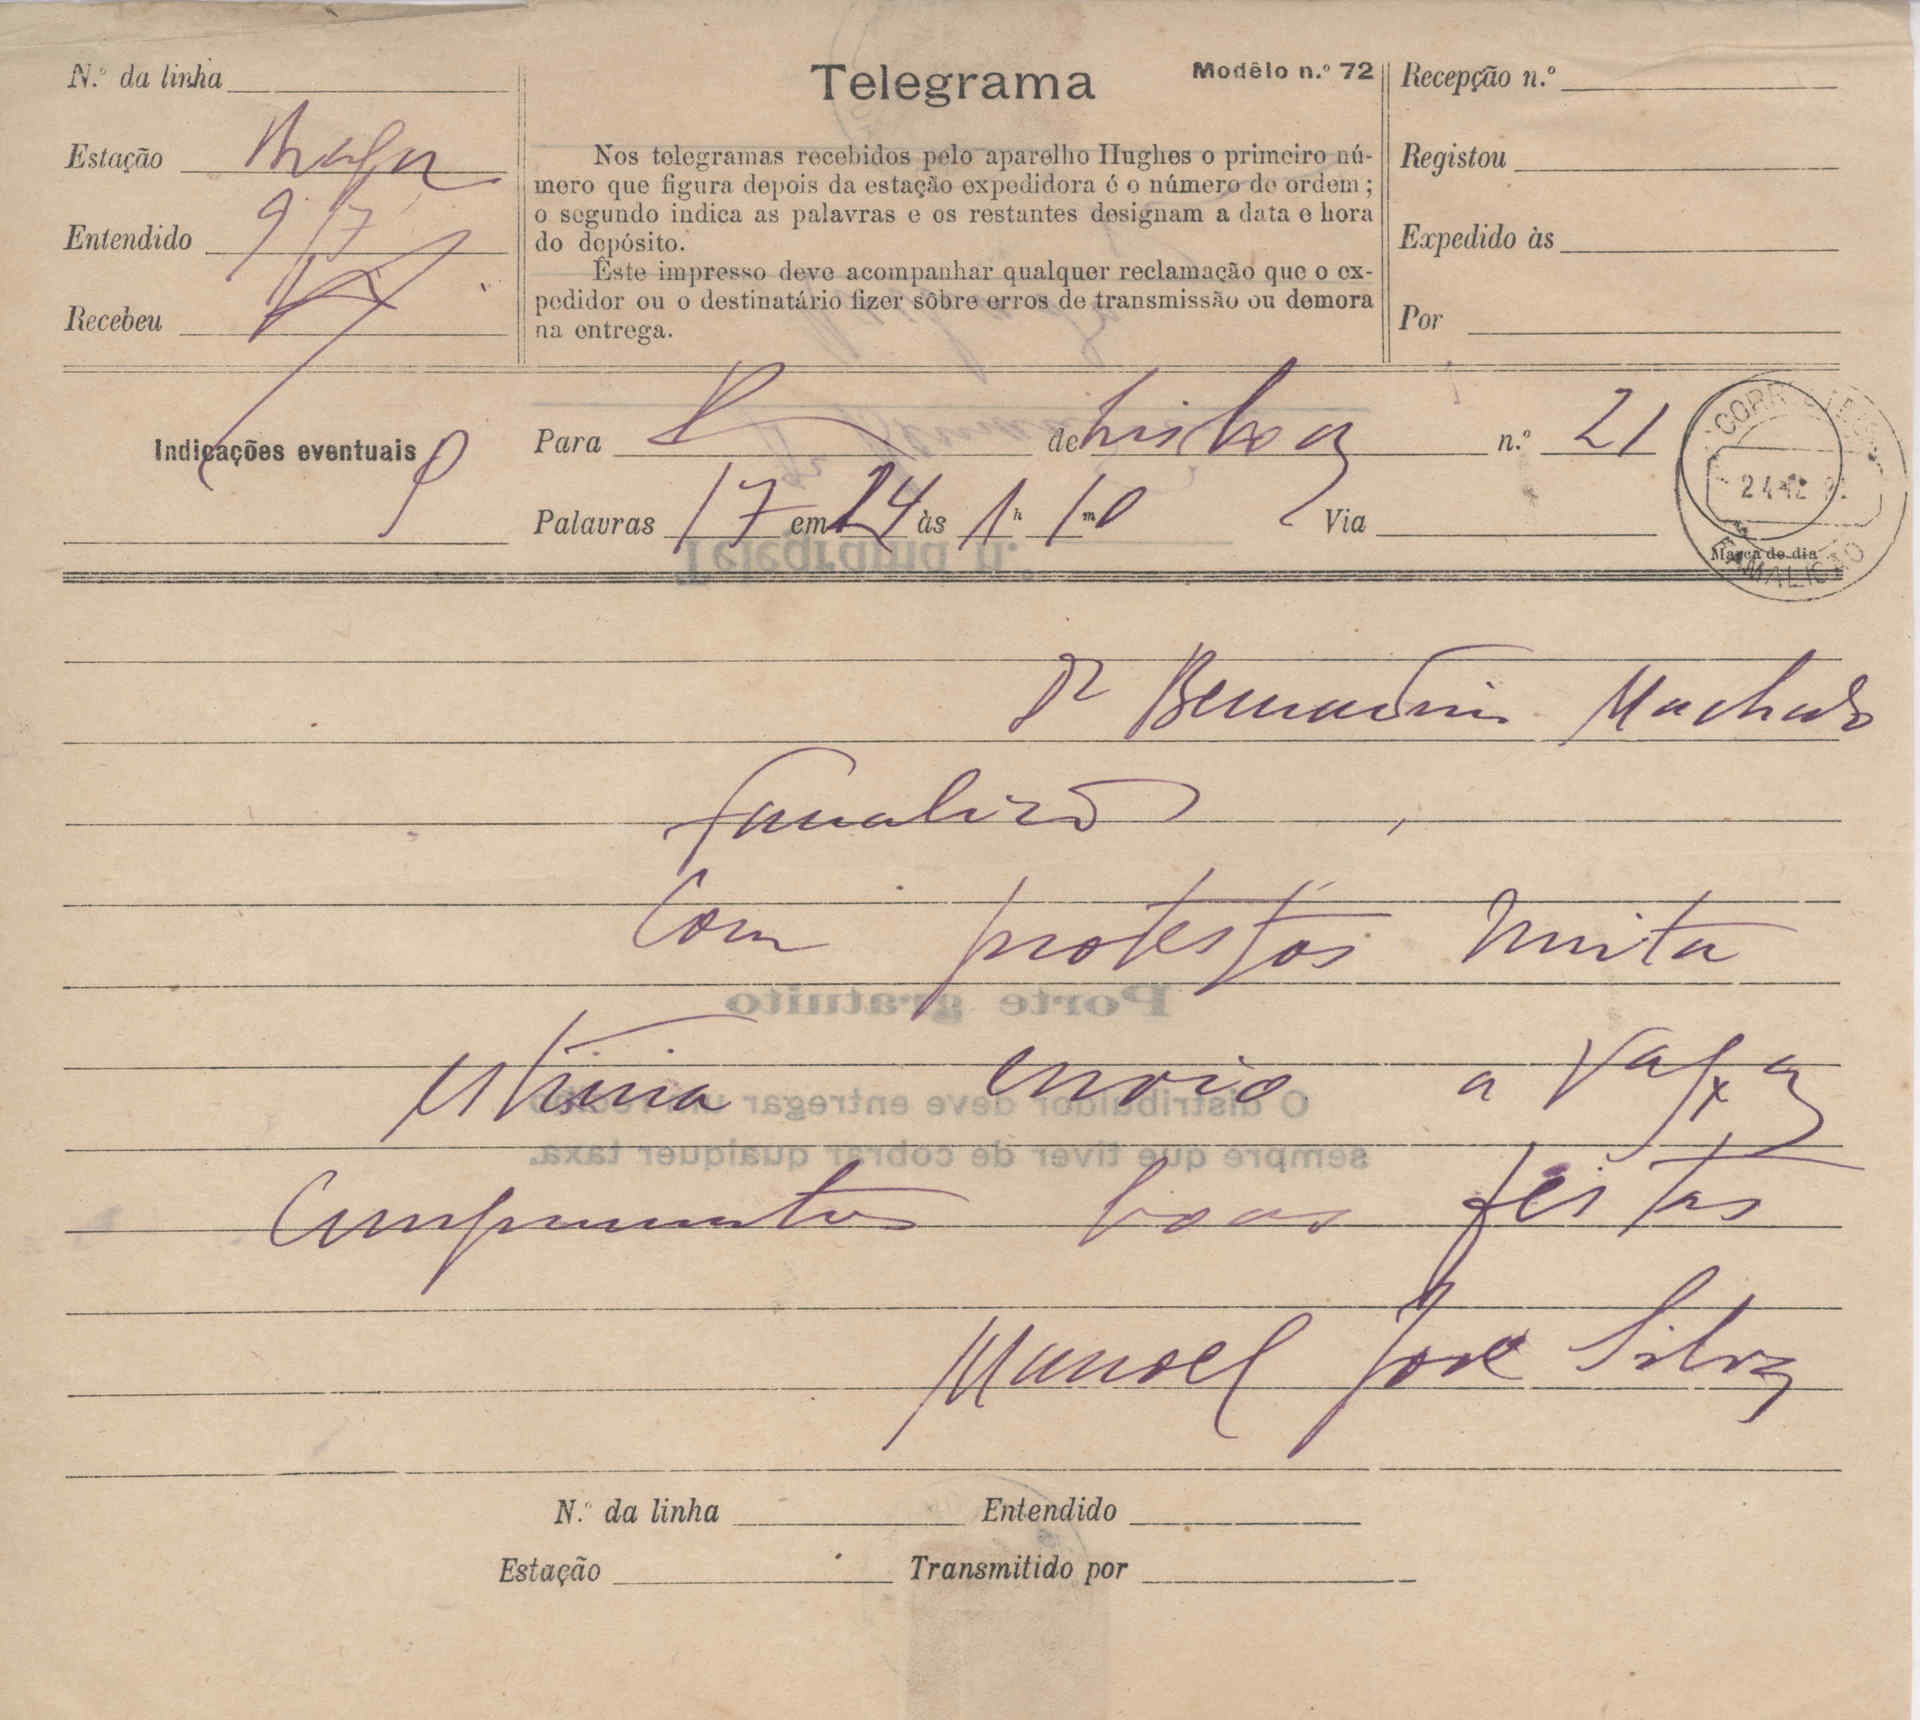 Telegrama
Modêlo n.º 72
N.º da linha
Estação Braga
Entendido 9/7
Recebeu
Nos telegramas recebidos pelo aparelho Hughes o primeiro nú-
mero que figura depois da estação expedidora é o número de ordem;
o segundo indica as palavras e os restantes designam a data e hora
do depósito.
Êste impresso deve acompanhar qualquer reclamação que o ex-
pedidor ou o destinatário fizer sôbre erros de transmissão ou demora
na entrega.
Recepção n.º
Registou
Expedido às
Por
Indicações eventuais
Para de Lisboa n.º 21
Palavras 17 em 24 às 1 h 10 m Via
CORR
24 12
FAMALICÃO
Marca do dia
Dr Bernardino Machado
Famalicão
Com protestos muita
estima envio a Vaexa
Cumprimentos boas festas
Manoel José Silva
N.º da linha Entendido
Estação Transmitido por
Telegrama n.
Porte gratuito
O distribuidor deve entregar um recibo
sempre que tiver de cobrar qualquer taxa.